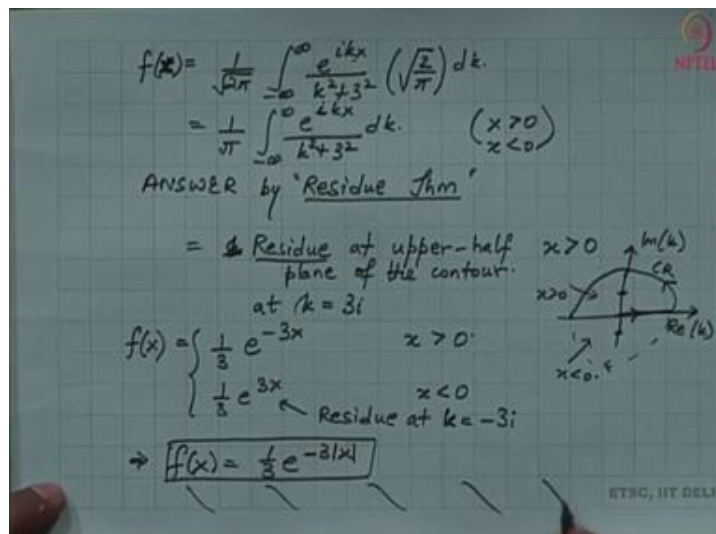 f(x) = 1/√2π ∫_{-∞}^{∞} e^{ikx}/(k²+3²) (√(2/π)) dk.
NPTEL
= 1/π ∫_{-∞}^{∞} e^{ikx}/(k²+3²) dk. (x>0
x<0)
ANSWER by "Residue Thm"
= Residue at upper-half x>0
plane of the contour.
at k = 3i
Im(k)
CR
x>0
Re(k)
x<0.
f(x) = { 1/3 e^{-3x} x > 0.
1/3 e^{3x} x<0
Residue at k = -3i
⇒ f(x) = 1/3 e^{-3|x|}
ETSC, IIT DELH